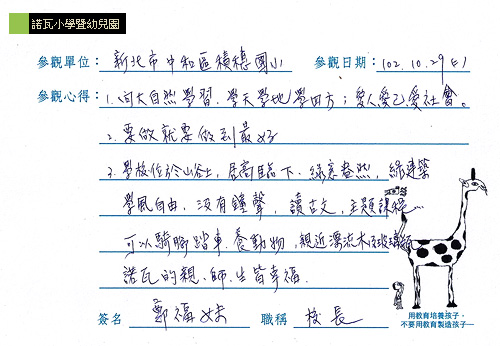 諾瓦小學暨幼兒園
參觀單位： 新北市中和區積穗國小 參觀日期：102.10.29(二)
參觀心得：1.向大自然學習．學天學地學四方；愛人愛己愛社會。
2.要做就要做到最好
3.學校位於山谷上，居高臨下．綠意盎然，綠建築
學風自由．沒有鐘聲，讀古文，主題課程…
可以騎腳踏車．養動物，親近溪流
諾瓦的親．師．生皆幸福．
簽名 鄭福妹 職稱 校長
用教育培養孩子，
不要用教育製造孩子